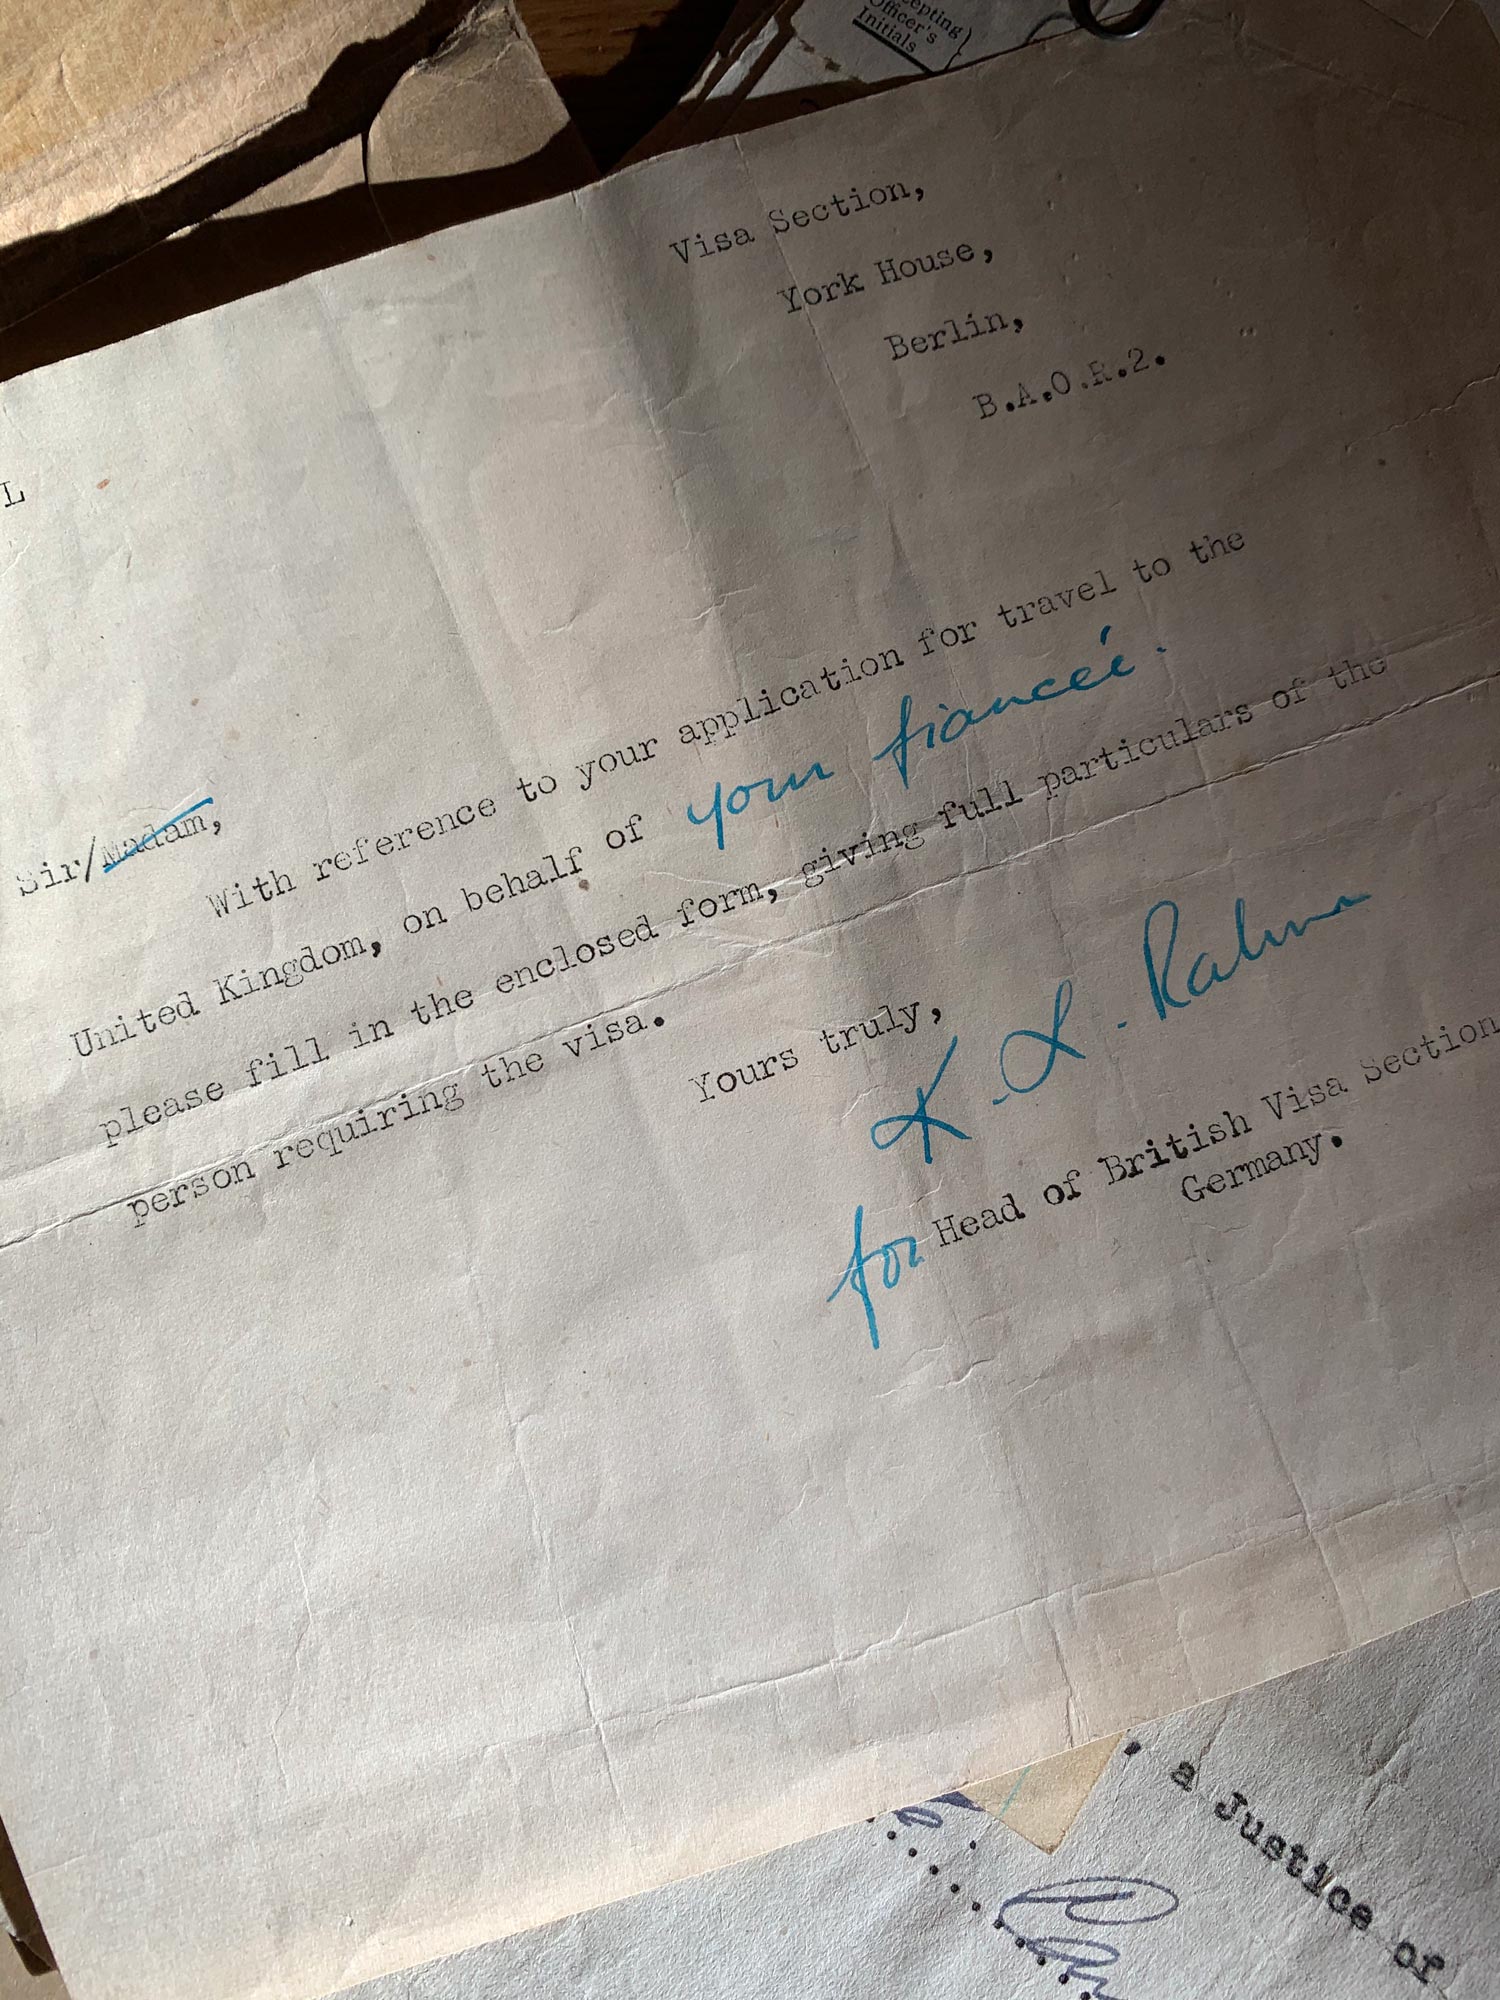 cepting
Officer's
Initials
Visa Section,
York House,
Berlin,
B.A.O.R.2.
L
Sir/Madam,
With reference to your application for travel to the
United Kingdom, on behalf of your fianceé.
please fill in the enclosed form, giving full particulars of the
person requiring the visa.
Yours truly,
K. L.
for Head of British Visa Section
Germany.
a Justice of